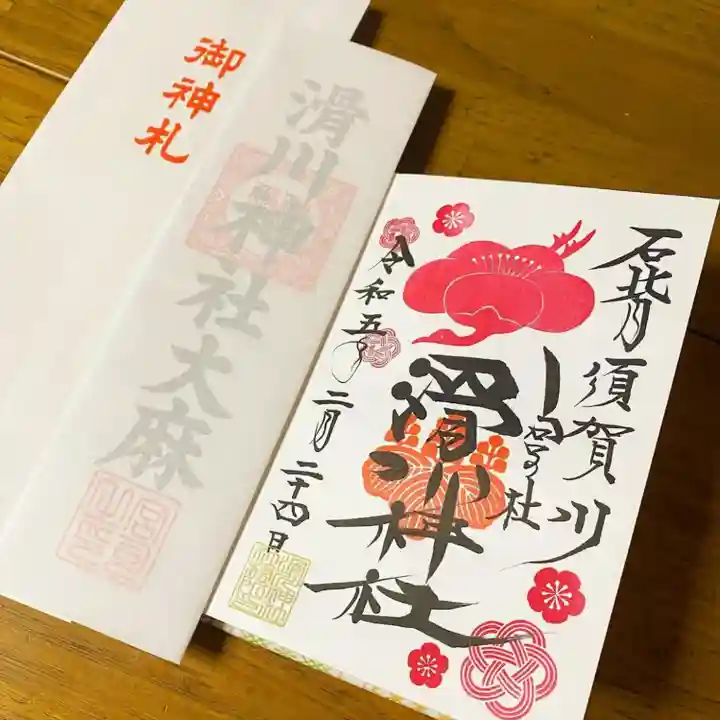 御神札
滑川神社大麻
石背
須賀川
滑川神社
令和五年
二月
二十四日